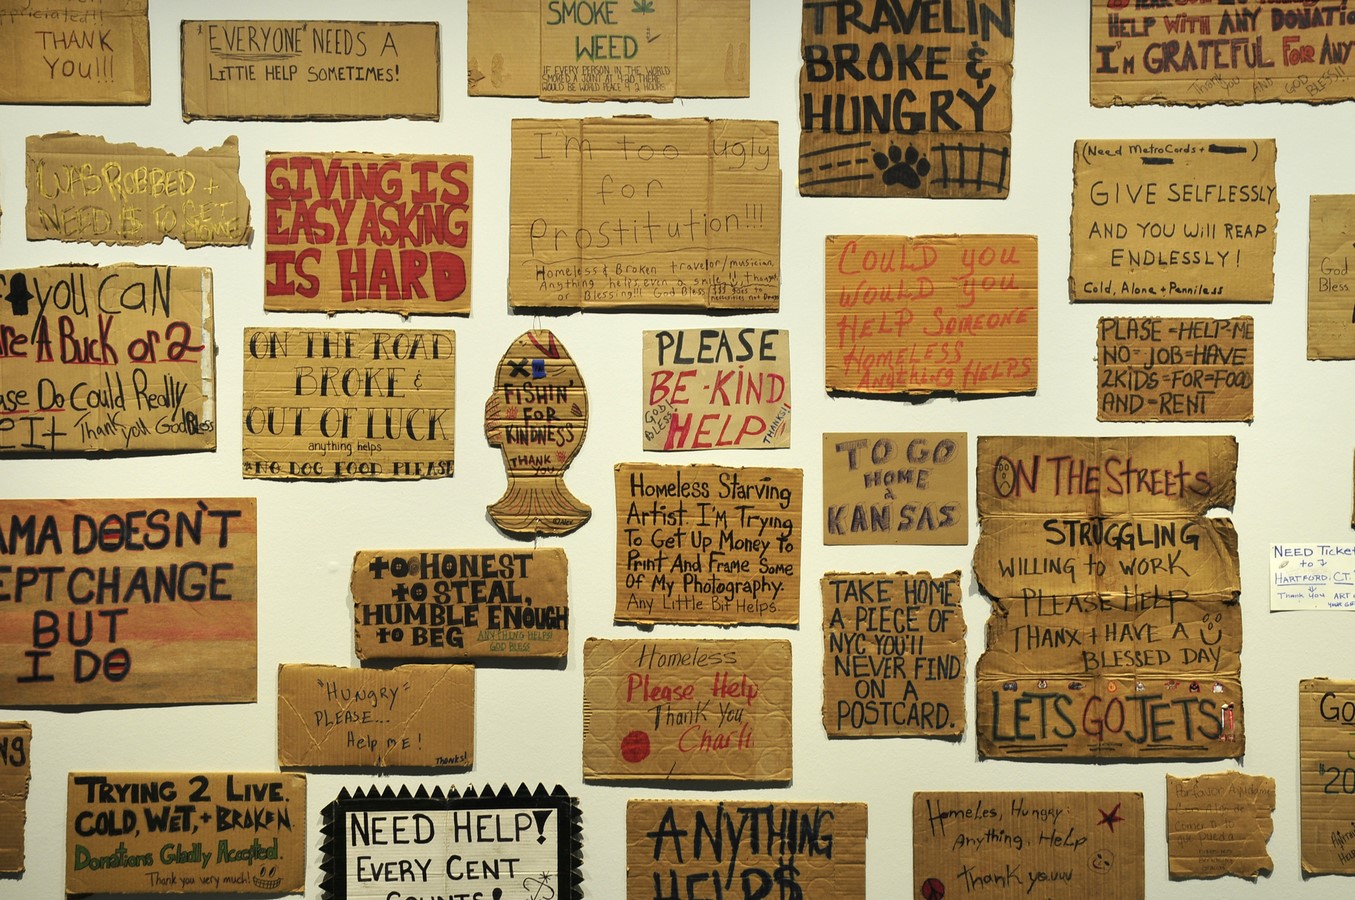 THANK
YOU!!!
"EVERYONE" NEEDS A
LITTLE HELP SOMETIMES!
SMOKE
WEED
IF EVERY PERSON IN THE WORLD
SMOKED A JOINT AT 4:20 THERE
WOULD BE WORLD PEACE 4 2 HOURS
TRAVELIN
BROKE &
HUNGRY
HELP WITH ANY DONATIO
I'M GRATEFUL FOR ANY
Thank you AND GOD BLESS!!
WAS ROBBED +
NEED $ TO GET
GIVING IS
EASY ASKING
IS HARD
I'm too ugly
for
Prostitution!!!
Homeless & Broken travelor/musician.
Anything helps even a smile
or Blessing!!! God Bless
(Need MetroCards + )
GIVE SELFLESSLY
AND YOU WILL REAP
ENDLESSLY!
Cold, Alone + Penniless
COULD you
WOULD you
HELP SOMEONE
HOMELESS
ANYTHING HELPS
God
Bless
YOU CAN
A Buck or 2
Do Could Really
It Thank you God Bless
ON THE ROAD
BROKE &
OUT OF LUCK
anything helps
*NO DOG FOOD PLEASE
FISHIN'
FOR
KINDNESS
THANK
YOU
PLEASE
BE-KIND
HELP
GOD BLESS!
THANKS!
PLASE=HELP-ME
NO-JOB=HAVE
2KIDS=FOR=FOOD
AND=RENT
TO GO
HOME
&
KANSAS
Homeless Starving
Artist. I'm Trying
To Get Up Money To
Print And Frame Some
Of My Photography.
Any Little Bit Helps.
ON THE STREETS
STRUGGLING
WILLING to WORK
PLEASE HELP
THANX + HAVE A
BLESSED DAY
LETS GO JETS!
AMA DOESN'T
EPT CHANGE
BUT
I DO
to HONEST
to STEAL,
HUMBLE ENOUGH
to BEG
ANYTHING HELPS
GOD BLESS
TAKE HOME
A PIECE OF
NYC YOU'LL
NEVER FIND
ON A
POSTCARD.
NEED Ticket
to
HARTFORD, CT.
Thank you
"HUNGRY"
PLEASE...
Help me!
THANKS!
Homeless
Please Help
Thank You
Charli
TRYING 2 LIVE.
COLD, WET, + BROKEN.
Donations Gladly Accepted.
Thank you very much!
NEED HELP!
EVERY CENT
COUNTS!
ANYTHING
HELP$
Homeles, Hungry.
Anything, Help
thank youuu
Go
$20